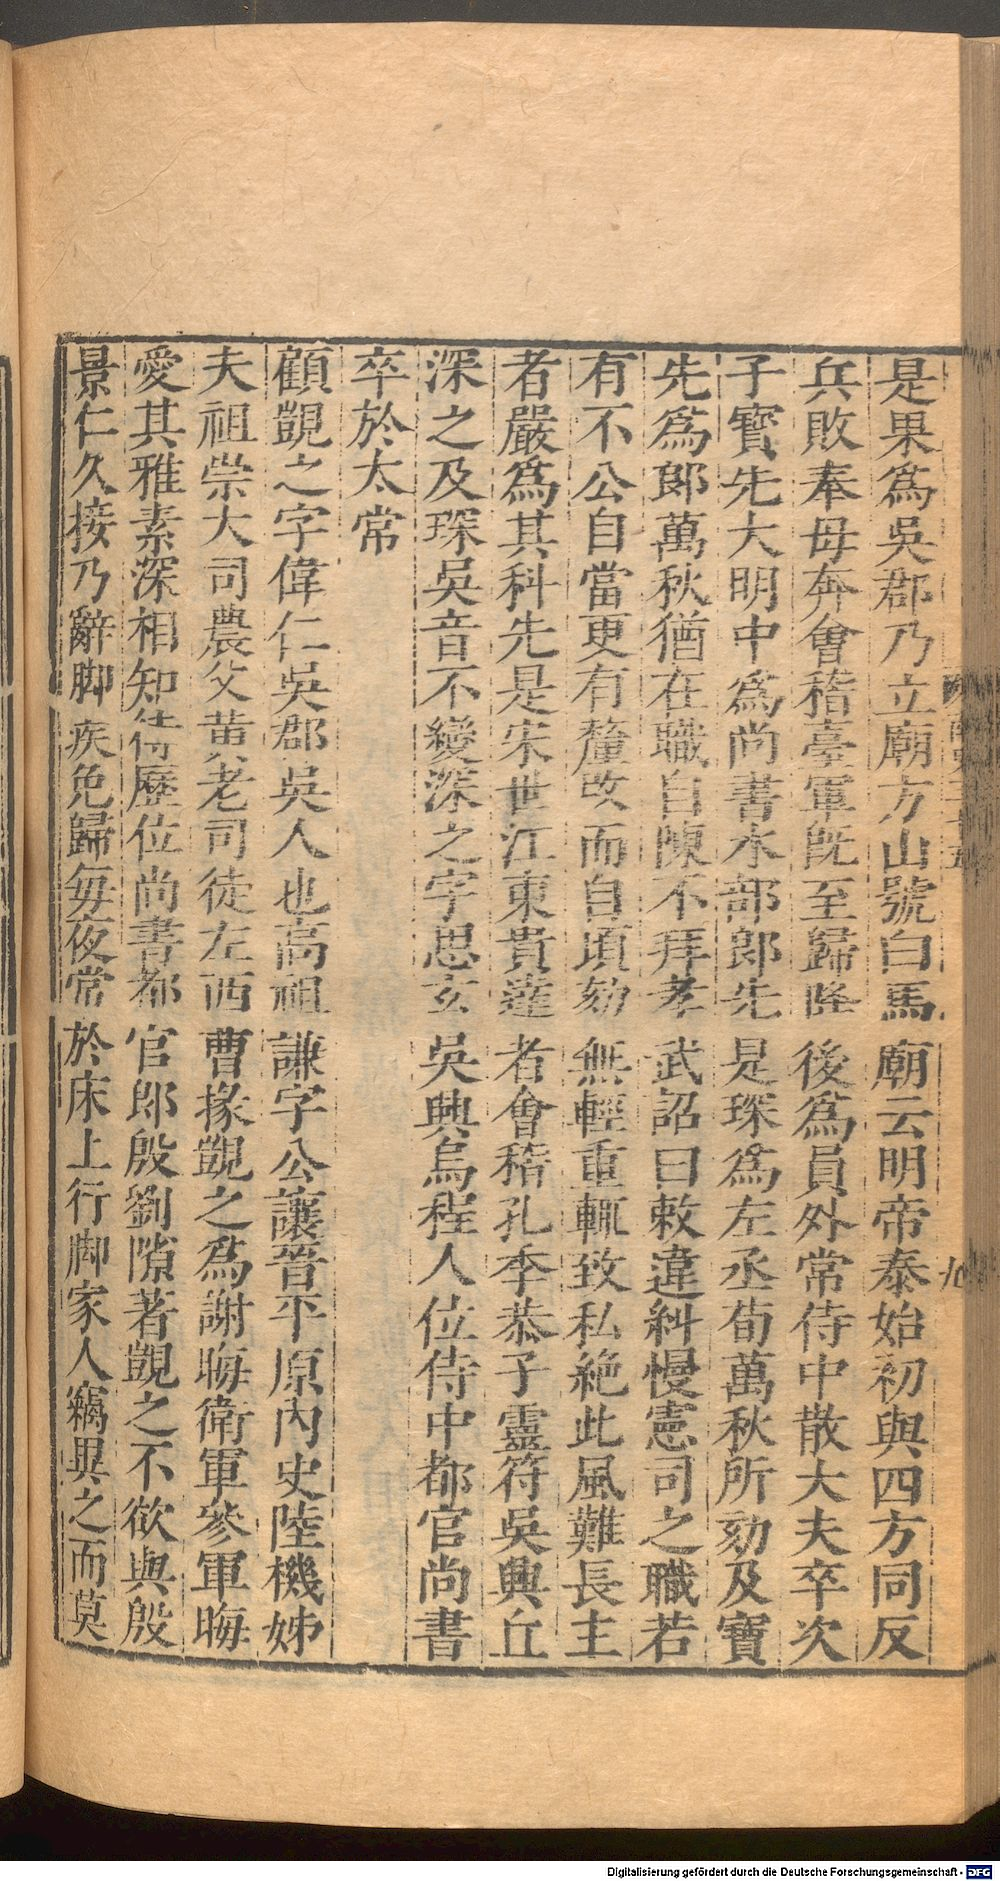 是果爲吳郡乃立廟方山號白馬廟云明帝泰始初與四方同反
兵敗奉母奔會稽臺軍旣至歸降後爲員外常侍中散大夫卒次
子寳先大明中爲尚書水部郎先是琛爲左丞荀萬秋所劾及寶
先爲郎萬秋猶在職自陳不拜孝武詔曰敕違糾慢憲司之職若
有不公自當更有釐改而自頃劾無輕重輒致私絶此風難長主
者嚴爲其科先是宋世江東貴達者會稽孔季恭子靈符吳興丘
深之及琛吳音不變深之字思玄吳興烏程人位侍中都官尚書
卒於太常
顧覬之字偉仁吳郡吳人也高祖謙字公讓晉平原內史陸機姊
夫祖崇大司農父黃老司徒左西曹掾覬之爲謝晦衛軍參軍晦
愛其雅素深相知待歷位尚書都官郎殷劉隙著覬之不欲與殷
景仁久接乃辭脚疾免歸毎夜常於床上行脚家人竊異之而莫
九
Digitalisierung gefördert durch die Deutsche Forschungsgemeinschaft - DFG